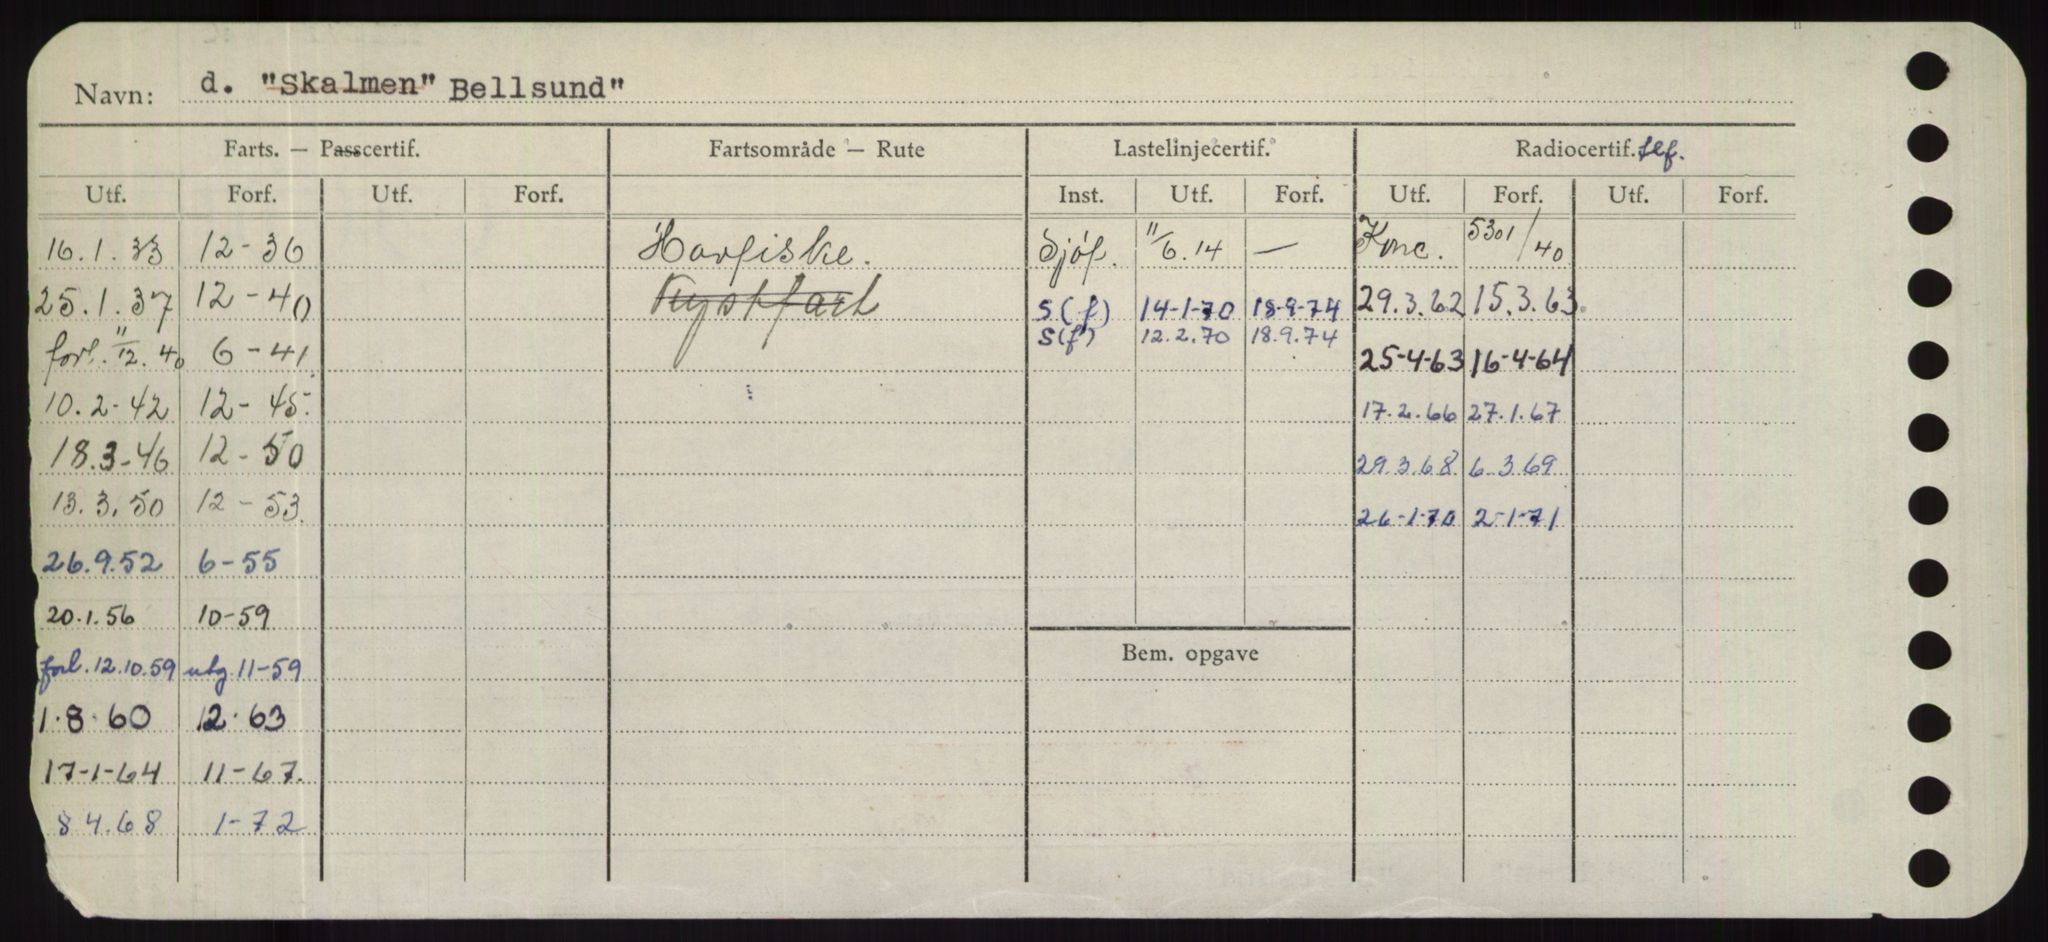 Navn: d. "Skalmen" Bellsund"
Farts. — Passcertif. Fartsområde — Rute Lastelinjecertif. Radiocertif. tlf.
Utf. Forf. Utf. Forf. Inst. Utf. Forf. Utf. Forf. Utf. Forf.
16.1.33 12-36 Havfiske. Sjöf. 11/6.14 — Konc. 5301/40
25.1.37 12-40 Kystfart S(f) 14-1-70 18-9-74 29.3.62 15.3.63
forl. 11/12.40 6-41 S(f) 12.2.70 18.9.74 25-4-63 16-4-64
10.2-42 12-45. 17.2.66 27.1.67
18.3-46 12-50 29.3.68 6.3.69
13.3.50 12-53 26-1-70 2-1-71
26.9.52 6-55
20.1.56 10-59
forl. 12.10.59 utg 11-59 Bem. opgave
1.8.60 12.63
17-1-64 11-67.
8 4.68 1-72